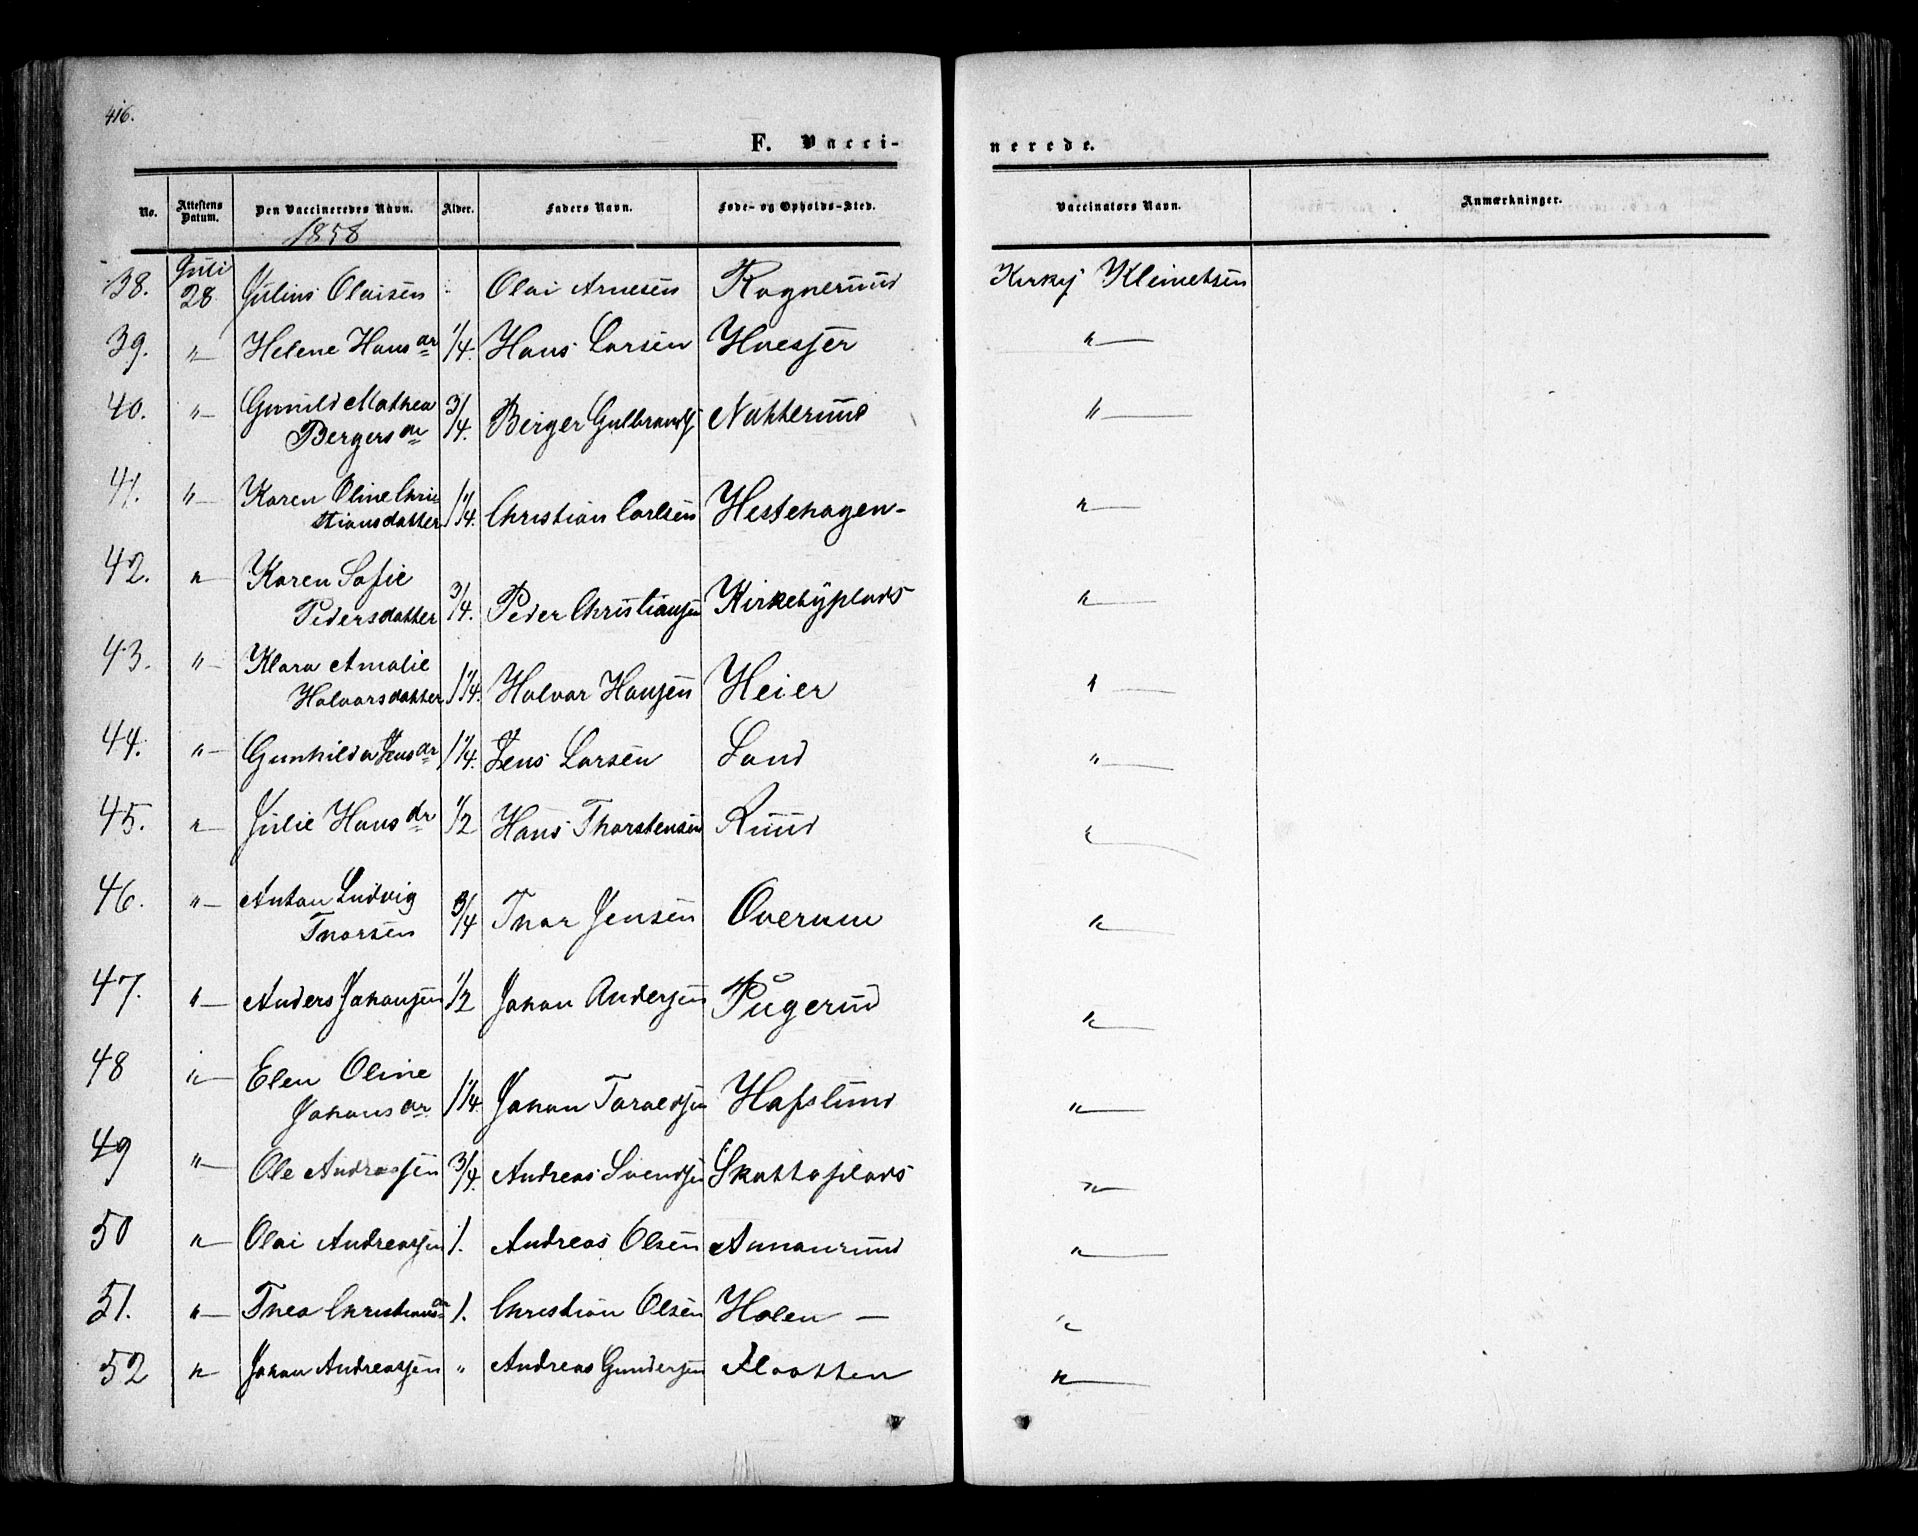 416.
F. Vacci-
nerede.
No. Attestens Datum. Den Vaccineredes Navn. Alder. Faders Navn. Føde- og Opholds-Sted. Vaccinators Navn. Anmærkninger.
1858
38. Juli 28 Julius Olaisen Olai Arnesen Rognerud Kirkesj Klemetsen
39. "— Helene Hansdr 1/4. Hans Larsen Huesjer "—
40. "— Gunild Mathea
Bergersdr 3/4. Berger Gulbrands. Nakkerud "—
41. "— Karen Oline Chri-
stiansdatter 1 1/4. Christian Carlsen Hestehagen- "—
42. "— Karen Sofie
Pedersdatter 3/4. Peder Christiansen Kirkebyplads "—
43. "— Klara Amalie
Halvorsdatter 1 1/4. Halvor Hansen Heier "—
44. "— Gunhilda Jensdr 1 1/4. Jens Larsen Sand "—
45. "— Julie Hansdr 1/2 Hans Thorstensen Ruud "—
46. "— Anton Ludvig
Thorsen 3/4 Thor Jensen Overum "—
47. "— Anders Johansen 1/2 Johan Andersen Pugerud "—
48 "— Elen Oline
Johansdr 1 1/4. Johan Taraldsen Hafslund "—
49 "— Ole Andreassen 3/4. Andreas Svendsen Skattøplads "—
50 "— Olai Andreassen 1. Andreas Olsen Annanrud "—
51. "— Thea Christiansdr 1. Christian Olsen Holen — "
52 "— Johan Andreassen " Andreas Gundersen Flaatten "—